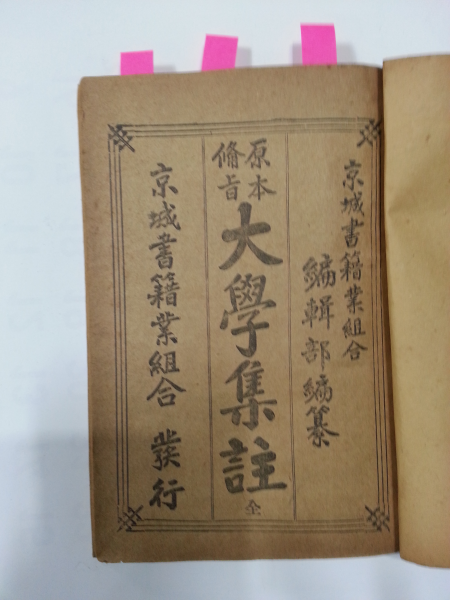 京城書籍業組合
編輯部編纂
原本
備旨
大學集註
全
京城書籍業組合 發行